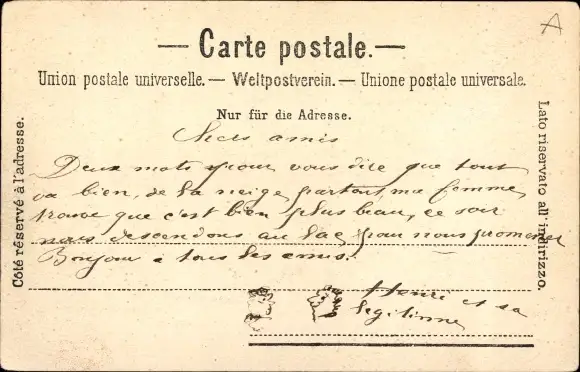 A
— Carte postale. —
Union postale universelle. — Weltpostverein. — Unione postale universale.
Nur für die Adresse.
Côté réservé à l'adresse.
Lato riservato all' indirizzo.
amis
Deux mots pour vous dire que tout
va bien, de la neige partout, ma femme
trouve que c'est bien plus beau, ce soir
nous descendons au lac pour nous promener
Bonjour a tous les amis.
Henri et sa
legitime